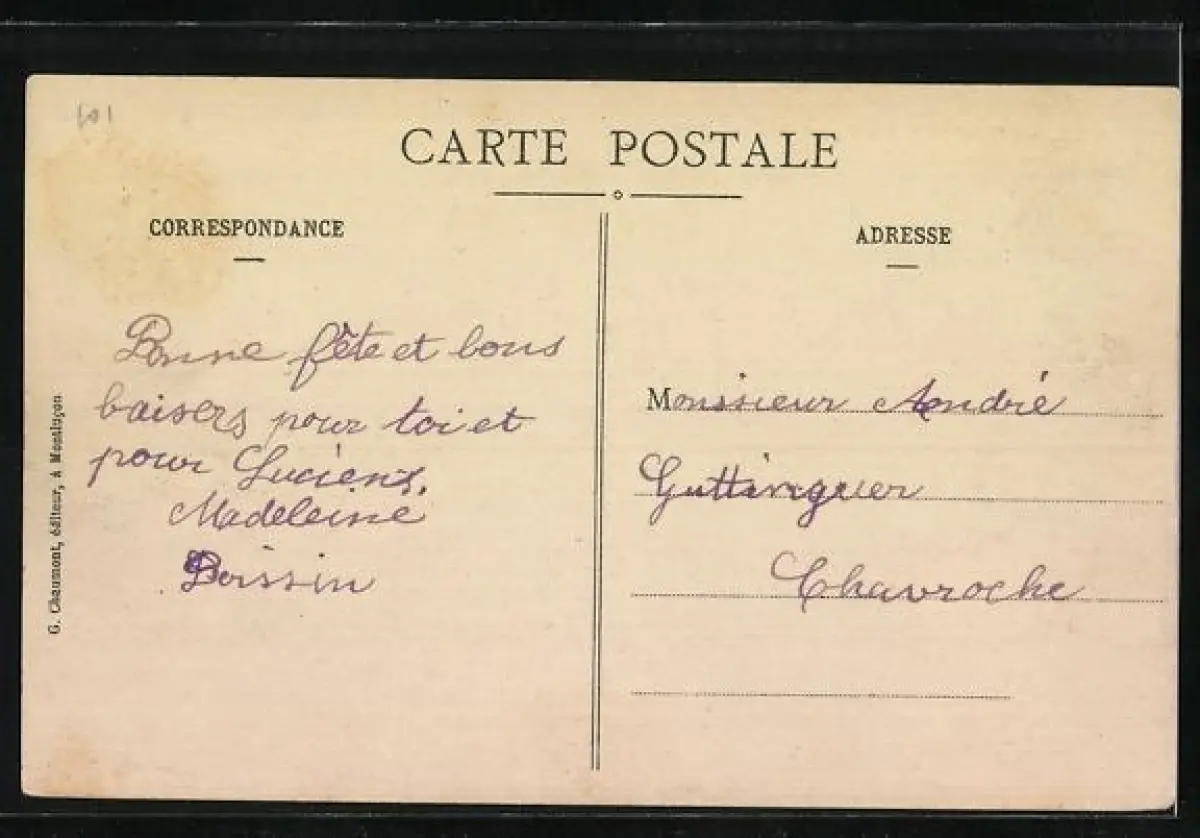 CARTE POSTALE
CORRESPONDANCE
ADRESSE
Bonne fête et bons
baisers pour toi et
pour Luciens,
Madeleine
Boissin
Monsieur André
Guttinguer
Chavroche
G. Chaumont, éditeur, à Montluçon